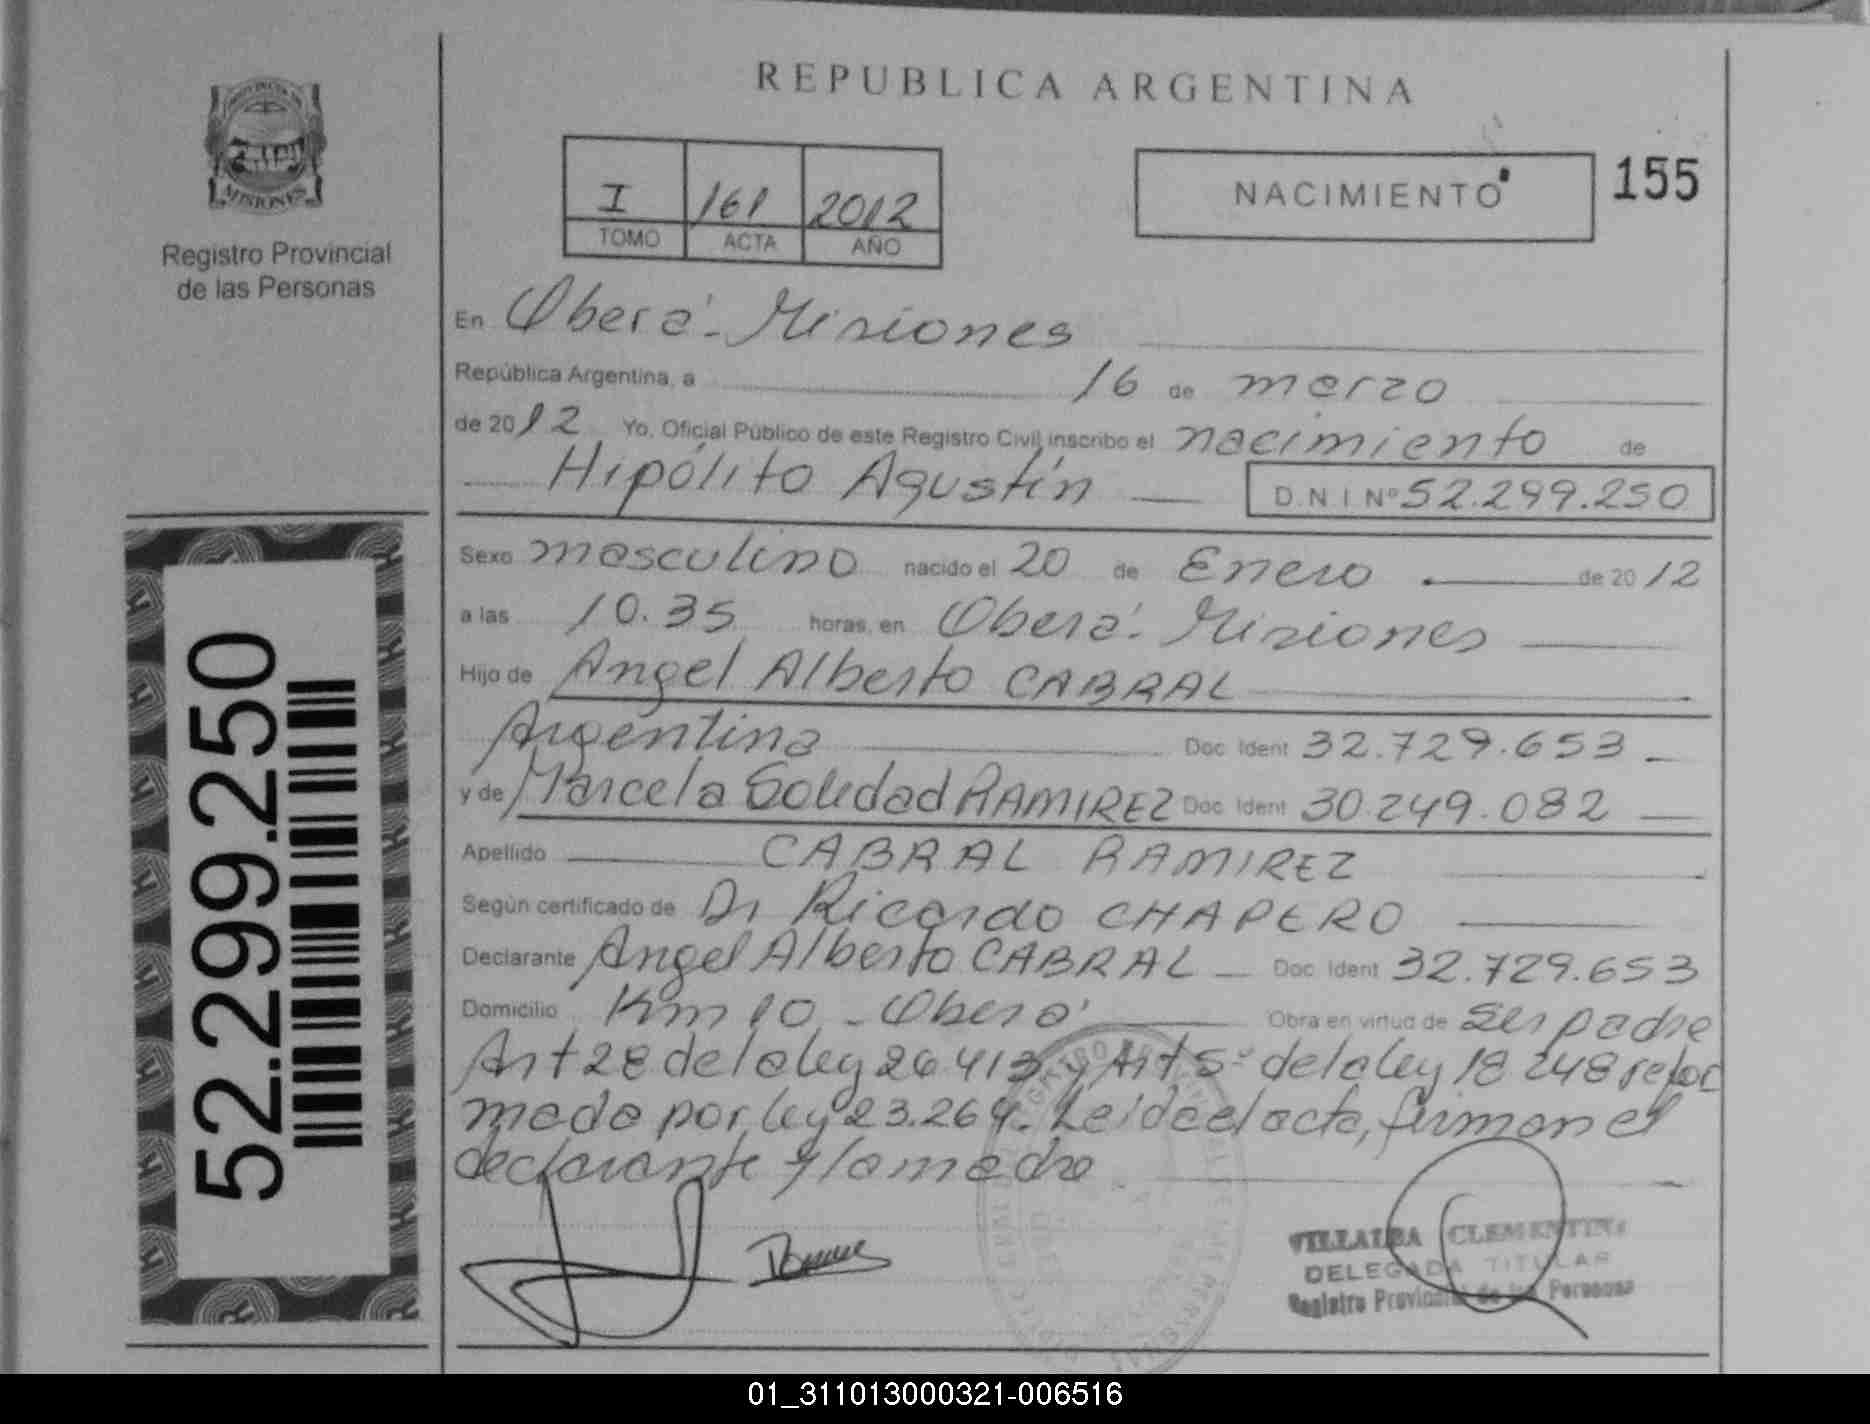 REPUBLICA ARGENTINA
MISIONES
Registro Provincial
de las Personas
I 161 2012
TOMO ACTA AÑO
NACIMIENTO 155
En Oberá - Misiones
República Argentina, a 16 de marzo
de 2012 Yo, Oficial Público de este Registro Civil, inscribo el nacimiento de
Hipólito Agustín D.N.I Nº 52.299.250
Sexo masculino nacido el 20 de Enero de 2012
a las 10.35 horas, en Oberá - Misiones
Hijo de Angel Alberto CABRAL
Argentina Doc. Ident 32.729.653
y de Marcela Soledad RAMIREZ Doc. Ident 30.249.082
Apellido CABRAL RAMIREZ
Según certificado de Dr Ricardo CHAPERO
Declarante Angel Alberto CABRAL Doc. Ident 32.729.653
Domicilio Km 10 - Oberá Obra en virtud de ser padre
Art 28 de la ley 26413 y Art 5º de la ley 18 248 refor
mada por ley 23.264. Leida el acta, firman el
declarante y la madre
VILLALBA CLEMENTINA
DELEGADA TITULAR
Registro Provincial de las Personas
52.299.250
01_311013000321-006516